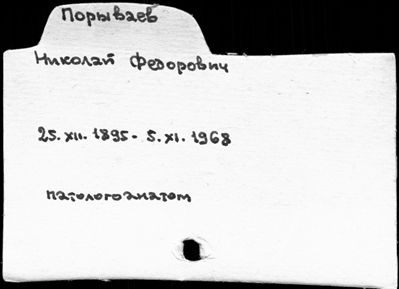 Порываев
Николай Федорович
25.XII.1895 - 5.XI.1968
патологоанатом